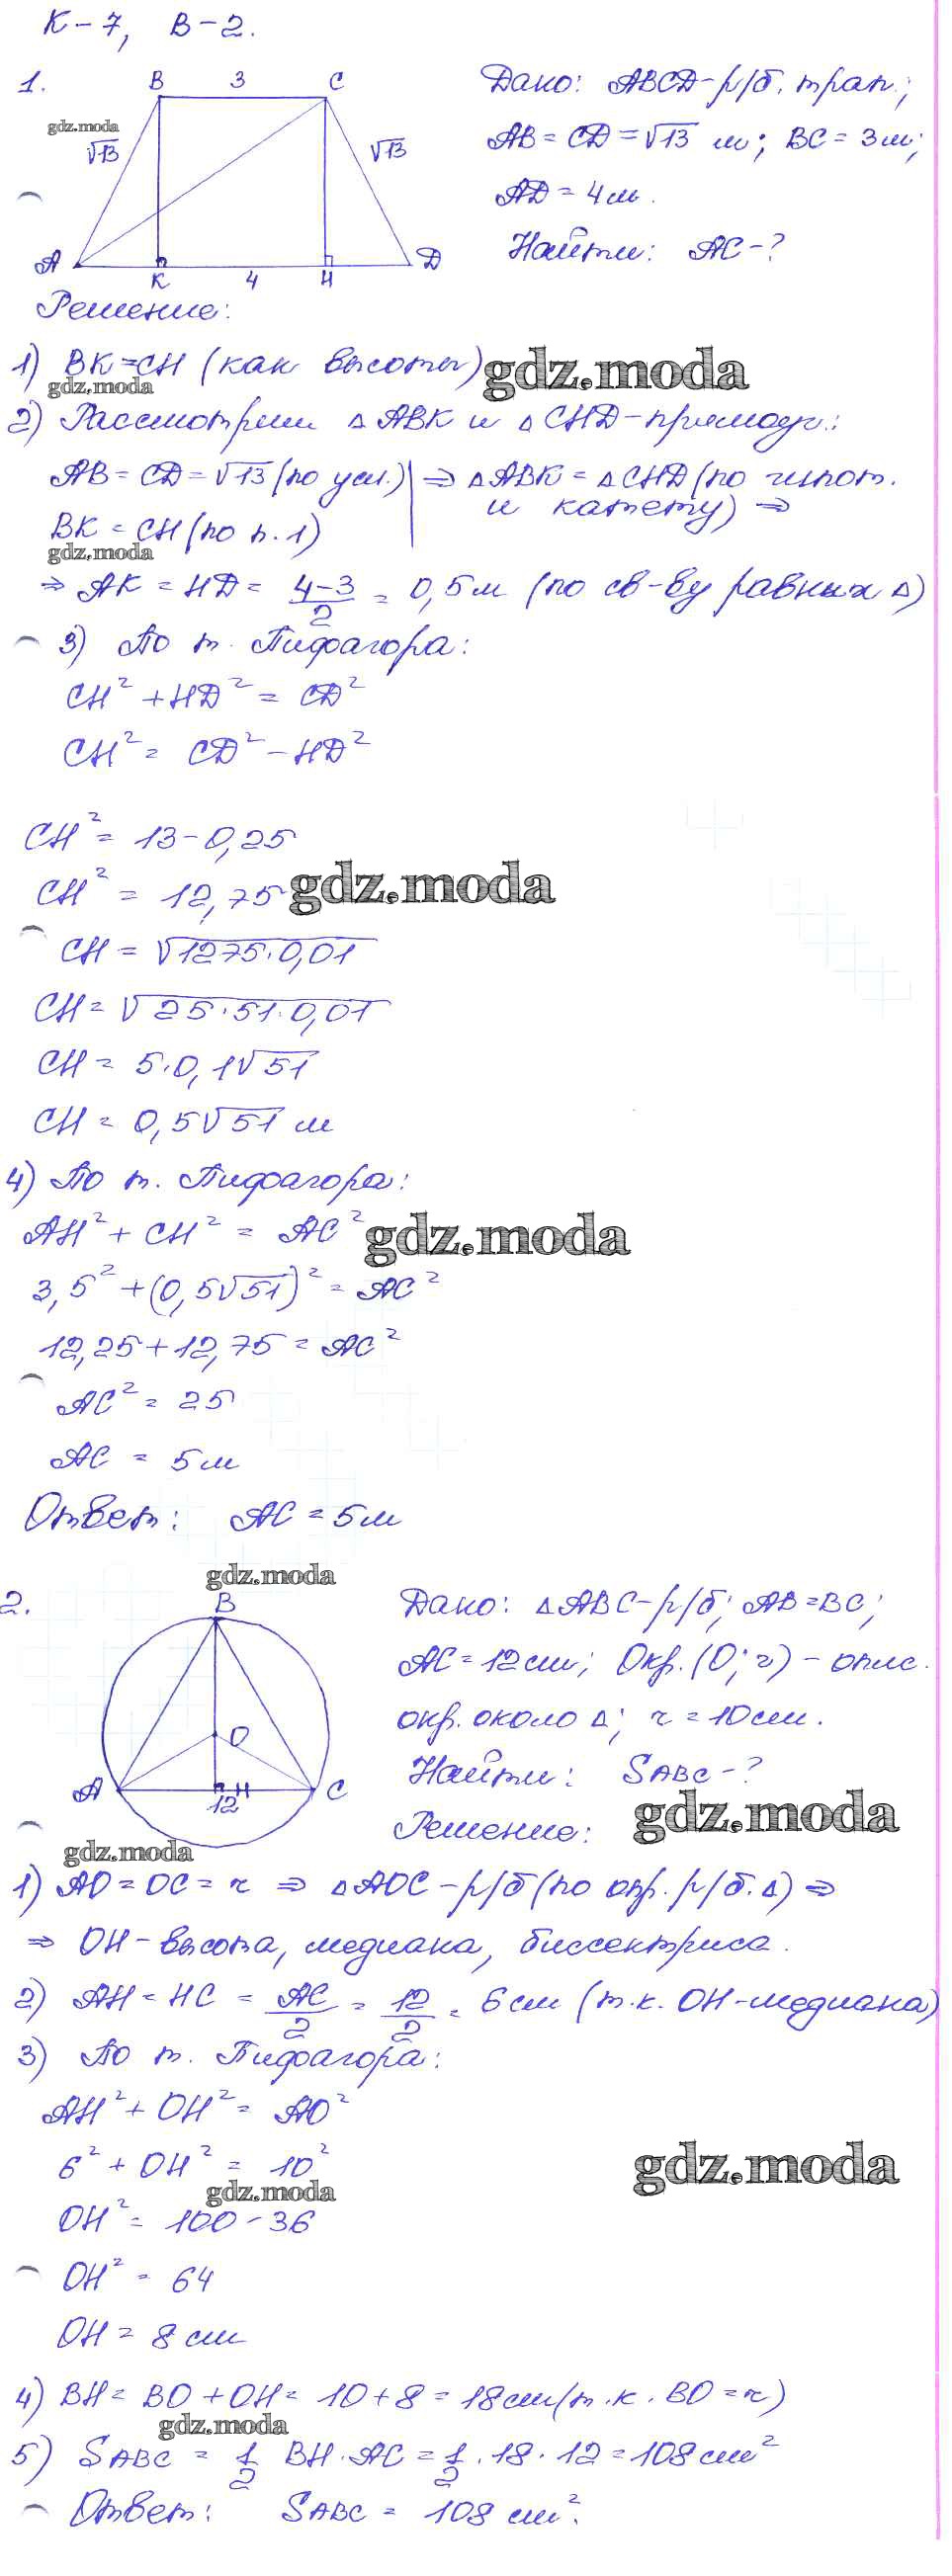 К-7, В-2.
1.
B 3 C
gdz.moda
√13 √13
A K 4 H D
Дано: ABCD-р/б. трап.;
AB = CD = √13 м; BC = 3м;
AD = 4м.
Найти: AC-?
Решение:
1) BK=CH (как высоты) gdz.moda
gdz.moda
2) Рассмотрим △ABK и △CHD-прямоуг.:
AB = CD = √13 (по усл.) | ⇒ △ABK = △CHD (по гипот.
BK = CH (по п. 1) и катету) ⇒
gdz.moda
⇒ AK = HD = (4-3)/2 = 0,5м (по св-ву равных △)
3) По т. Пифагора:
CH² + HD² = CD²
CH² = CD² - HD²
CH² = 13-0,25
CH² = 12,75 gdz.moda
CH = √1275·0,01
CH = √25·51·0,01
CH = 5·0,1√51
CH = 0,5√51 м
4) По т. Пифагора:
AH² + CH² = AC² gdz.moda
3,5² + (0,5√51)² = AC²
12,25+12,75 = AC²
AC² = 25
AC = 5м
Ответ: AC = 5м
gdz.moda
2.
B
O
A 12 H C
gdz.moda
Дано: △ABC-р/б; AB=BC;
AC=12см; Окр.(O;r) - опис.
окр. около △; r = 10см.
Найти: SABC-?
gdz.moda
Решение:
1) AO=OC=r ⇒ △AOC-р/б (по опр. р/б.△) ⇒
⇒ OH-высота, медиана, биссектриса.
2) AH = HC = AC/2 = 12/2 = 6см (т.к. OH-медиана)
3) По т. Пифагора:
AH² + OH² = AO²
6² + OH² = 10²
gdz.moda
gdz.moda
OH² = 100-36
OH² = 64
OH = 8см
4) BH = BO + OH = 10+8 = 18см (т.к. BO=r)
gdz.moda
5) SABC = 1/2 BH·AC = 1/2·18·12 = 108см²
Ответ: SABC = 108 см².